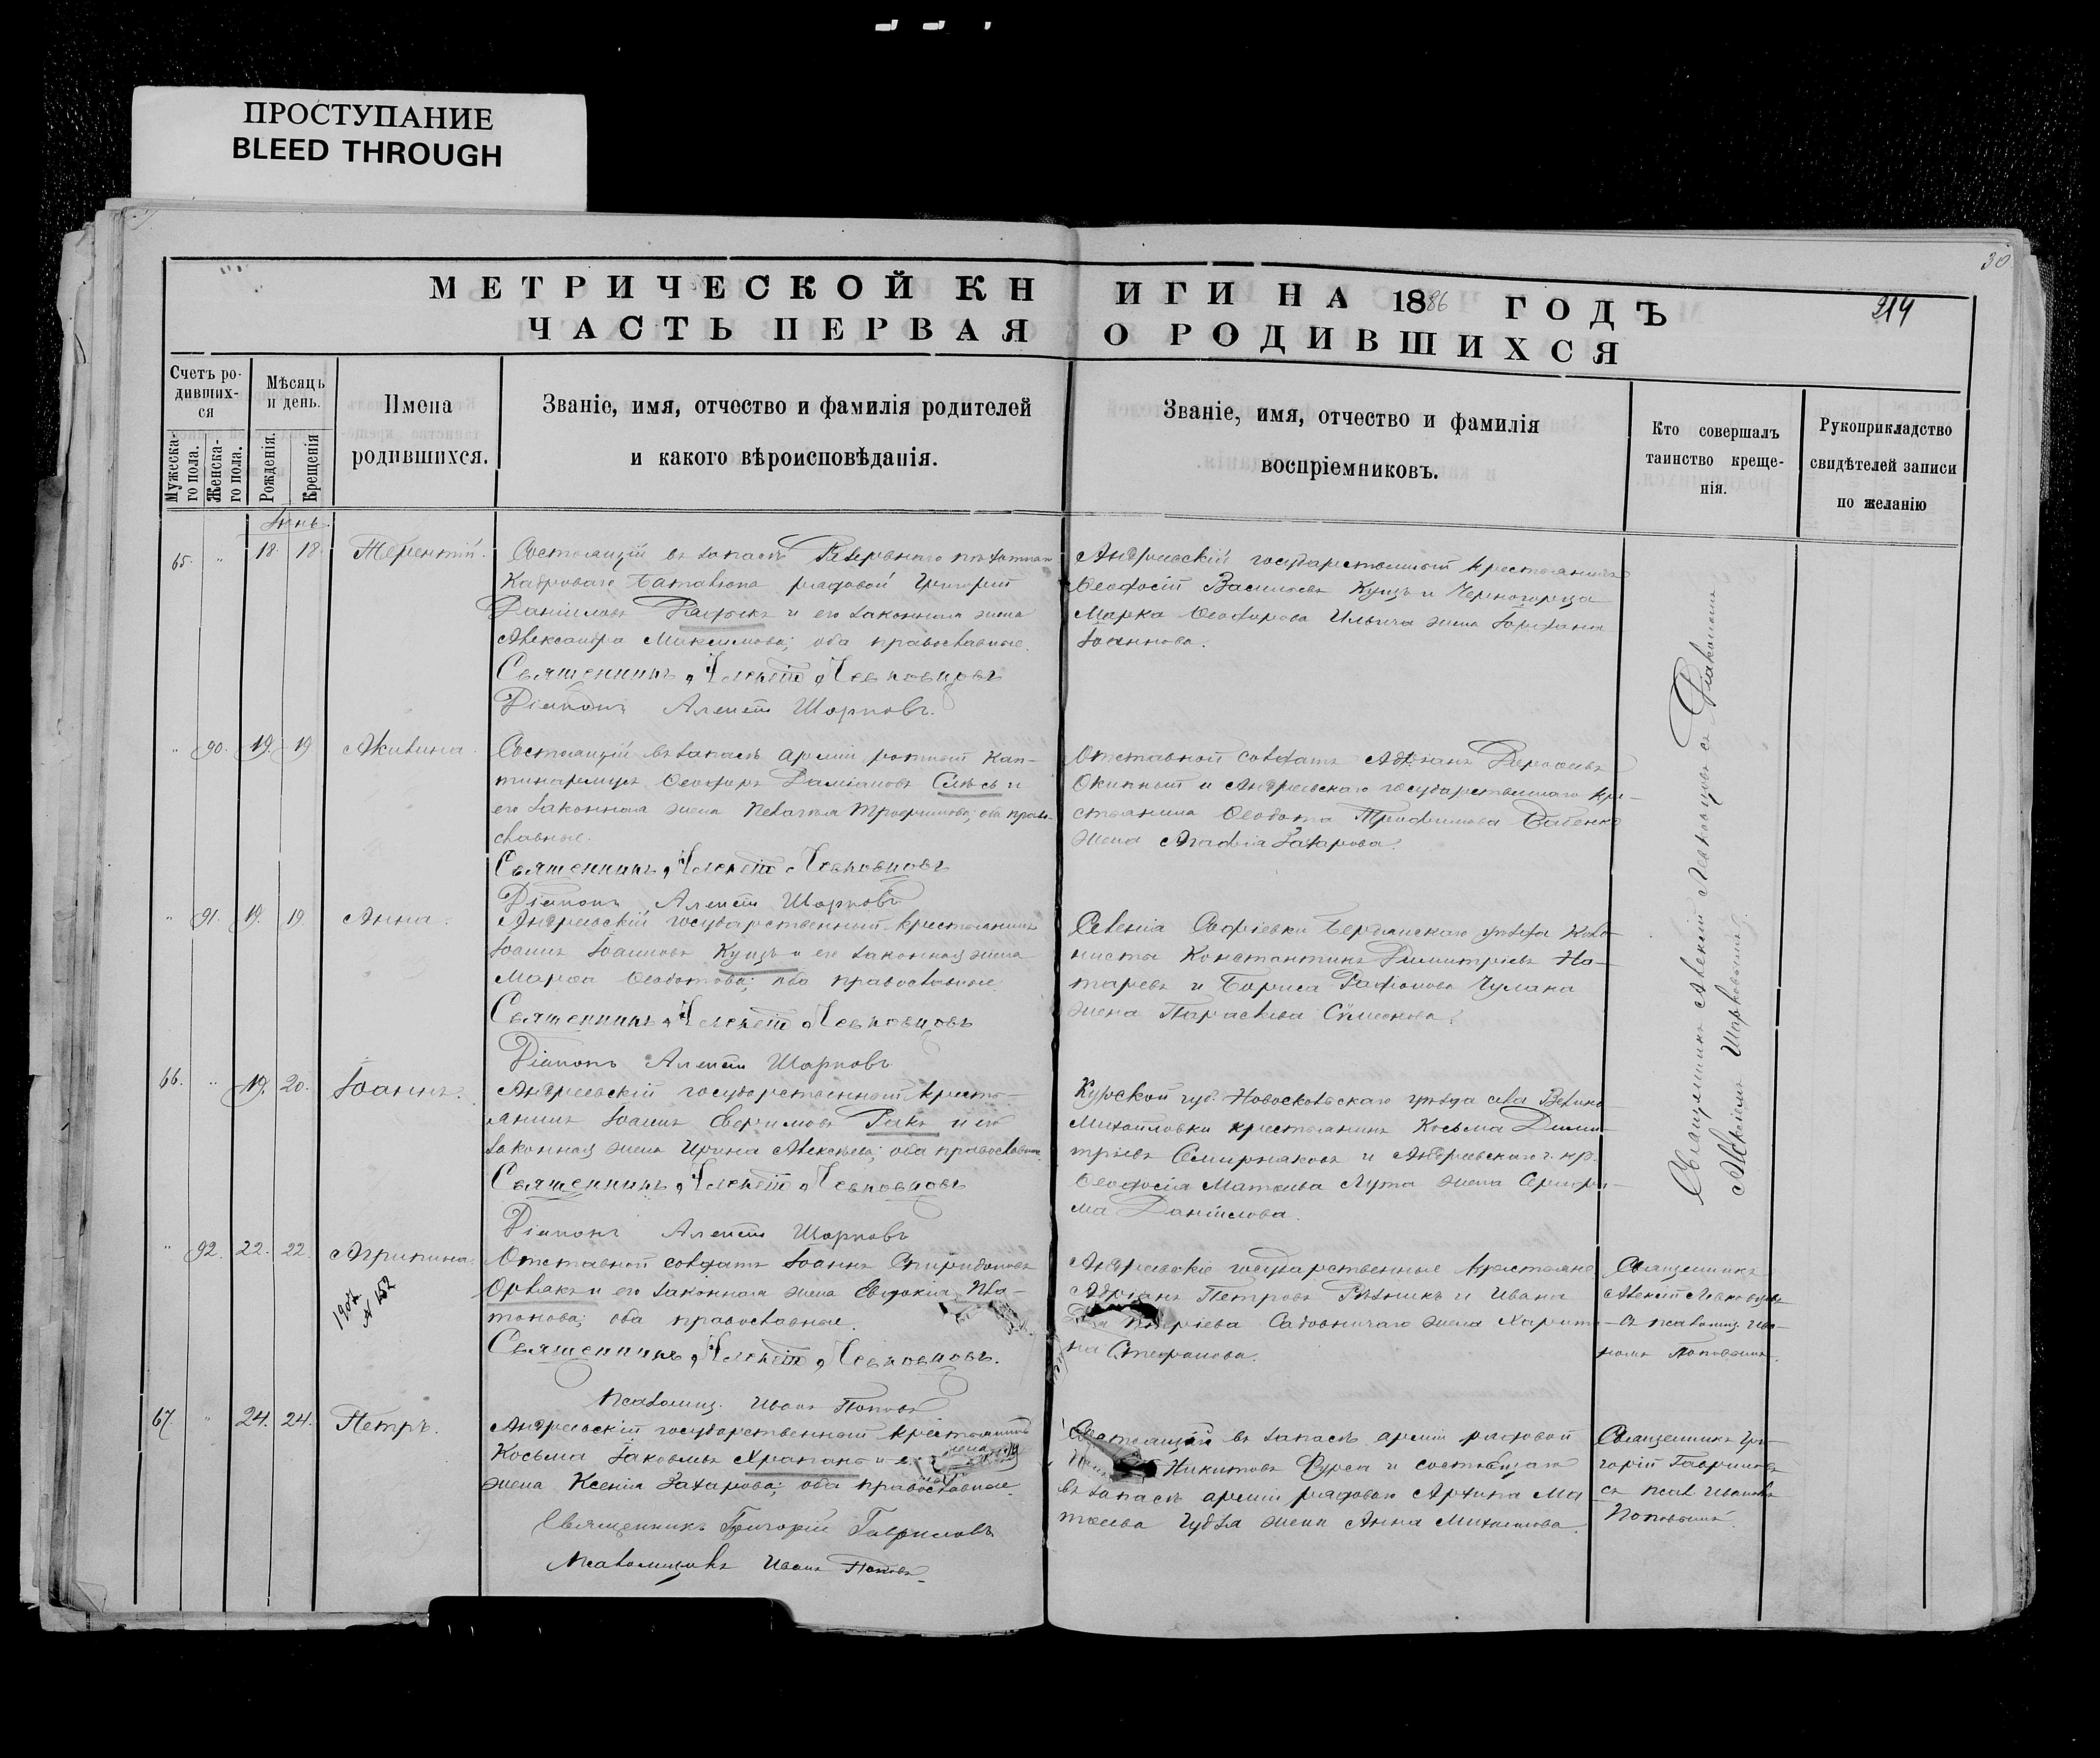 ПРОСТУПАНИЕ
BLEED THROUGH
30
МЕТРИЧЕСКОЙ КНИГИ НА 1886 ГОДЪ
214
ЧАСТЬ ПЕРВАЯ О РОДИВШИХСЯ
Счетъ ро-
дивших-
ся
Мужеска-
го пола.
Женска-
го пола.
Мѣсяцъ
и день.
Рожденія.
Крещенія
Имена
родившихся.
Званіе, имя, отчество и фамилія родителей
и какого вѣроисповѣданія.
Званіе, имя, отчество и фамилія
воспріемниковъ.
Кто совершалъ
таинство креще-
нія.
Рукоприкладство
свидѣтелей записи
по желанію
65. " 18. 18. Терентій.
Состоящій въ запасѣ Резервнаго пѣхотнаго
Кадроваго баталіона рядовой Григорій
Даніиловъ и его законная жена
Александра Максимова; оба православные.
Священникъ Алексій Левковцовъ
Діаконъ Алексій Шарковъ.
Андреевскій государственный крестьянинъ
Ѳеодосій Васильевъ Куцъ и Черногорца
Марка Ѳеодорова Ильича жена
Іоаннова.
" 90. 19. 19 Акилина.
Состоящій въ запасѣ арміи ротный кап-
тинармусъ Ѳеодоръ Даміановъ Слѣсь и
его законная жена Пелагія Трофимова; оба право-
славные.
Священникъ Алексій Левковцовъ
Діаконъ Алексій Шарковъ
Отставной солдатъ
и Андреевскаго государственнаго кре-
стьянина Ѳеодота Трофимова Бабенко
жена Агафія Захарова.
" 91. 19. 19 Анна.
Андреевскій государственный крестьянинъ
Іоаннъ Іоанновъ Куцъ и его законная жена
Марѳа Ѳеодотова; оба православные
Священникъ Алексій Левковцовъ
Діаконъ Алексій Шарковъ
Селенія Софіевки Бердянскаго уѣзда коло-
ниста Константинъ Димитріевъ
и Бориса Чулака
жена Параскева
66. " 19. 20. Іоаннъ.
Андреевскій государственный кресть-
янинъ Іоаннъ Ракъ и его
законная жена Ирина Алексѣева; оба православные.
Священникъ Алексій Левковцовъ
Діаконъ Алексій Шарковъ
Курской губ. Новоскольскаго уѣзда села Велико
Михайловки крестьянинъ Косьма Дими-
тріевъ и Андреевскаго г. кр.
Ѳеодосія Матѳеева Лута жена
Даніилова.
Священникъ Алексій Левковцовъ съ Діакономъ
Алексіемъ Шарковымъ.
" 92. 22. 22. Агрипина.
1907 N 152
Отставной солдатъ Іоаннъ Спиридоновъ
и его законная жена Евдокія Пла-
тонова; оба православные.
Священникъ Алексій Левковцовъ.
Псаломщ. Иванъ Поповъ
Андреевскіе государственные крестьяне
Адріанъ Петровъ Рѣзникъ и Ивана
Садовничаго жена Харити-
на Стефанова.
Священникъ
Алексій Левковцовъ
съ псаломщ. Ива-
номъ Поповымъ.
67. " 24. 24. Петръ.
Андреевскій государственный крестьянинъ
Косьма Іаковлевъ и его законная
жена Ксенія Захарова; оба православные.
Священникъ Григорій Гавриловъ
Псаломщикъ Иванъ Поповъ.
Состоящій въ запасѣ арміи рядовой
Никитовъ Фурса и состоящаго
въ запасѣ арміи рядоваго Архипа Ма
тѳеева жена Анна Михаилова.
Священникъ Гри-
горій Гавриловъ
съ псал. Иваномъ
Поповымъ.